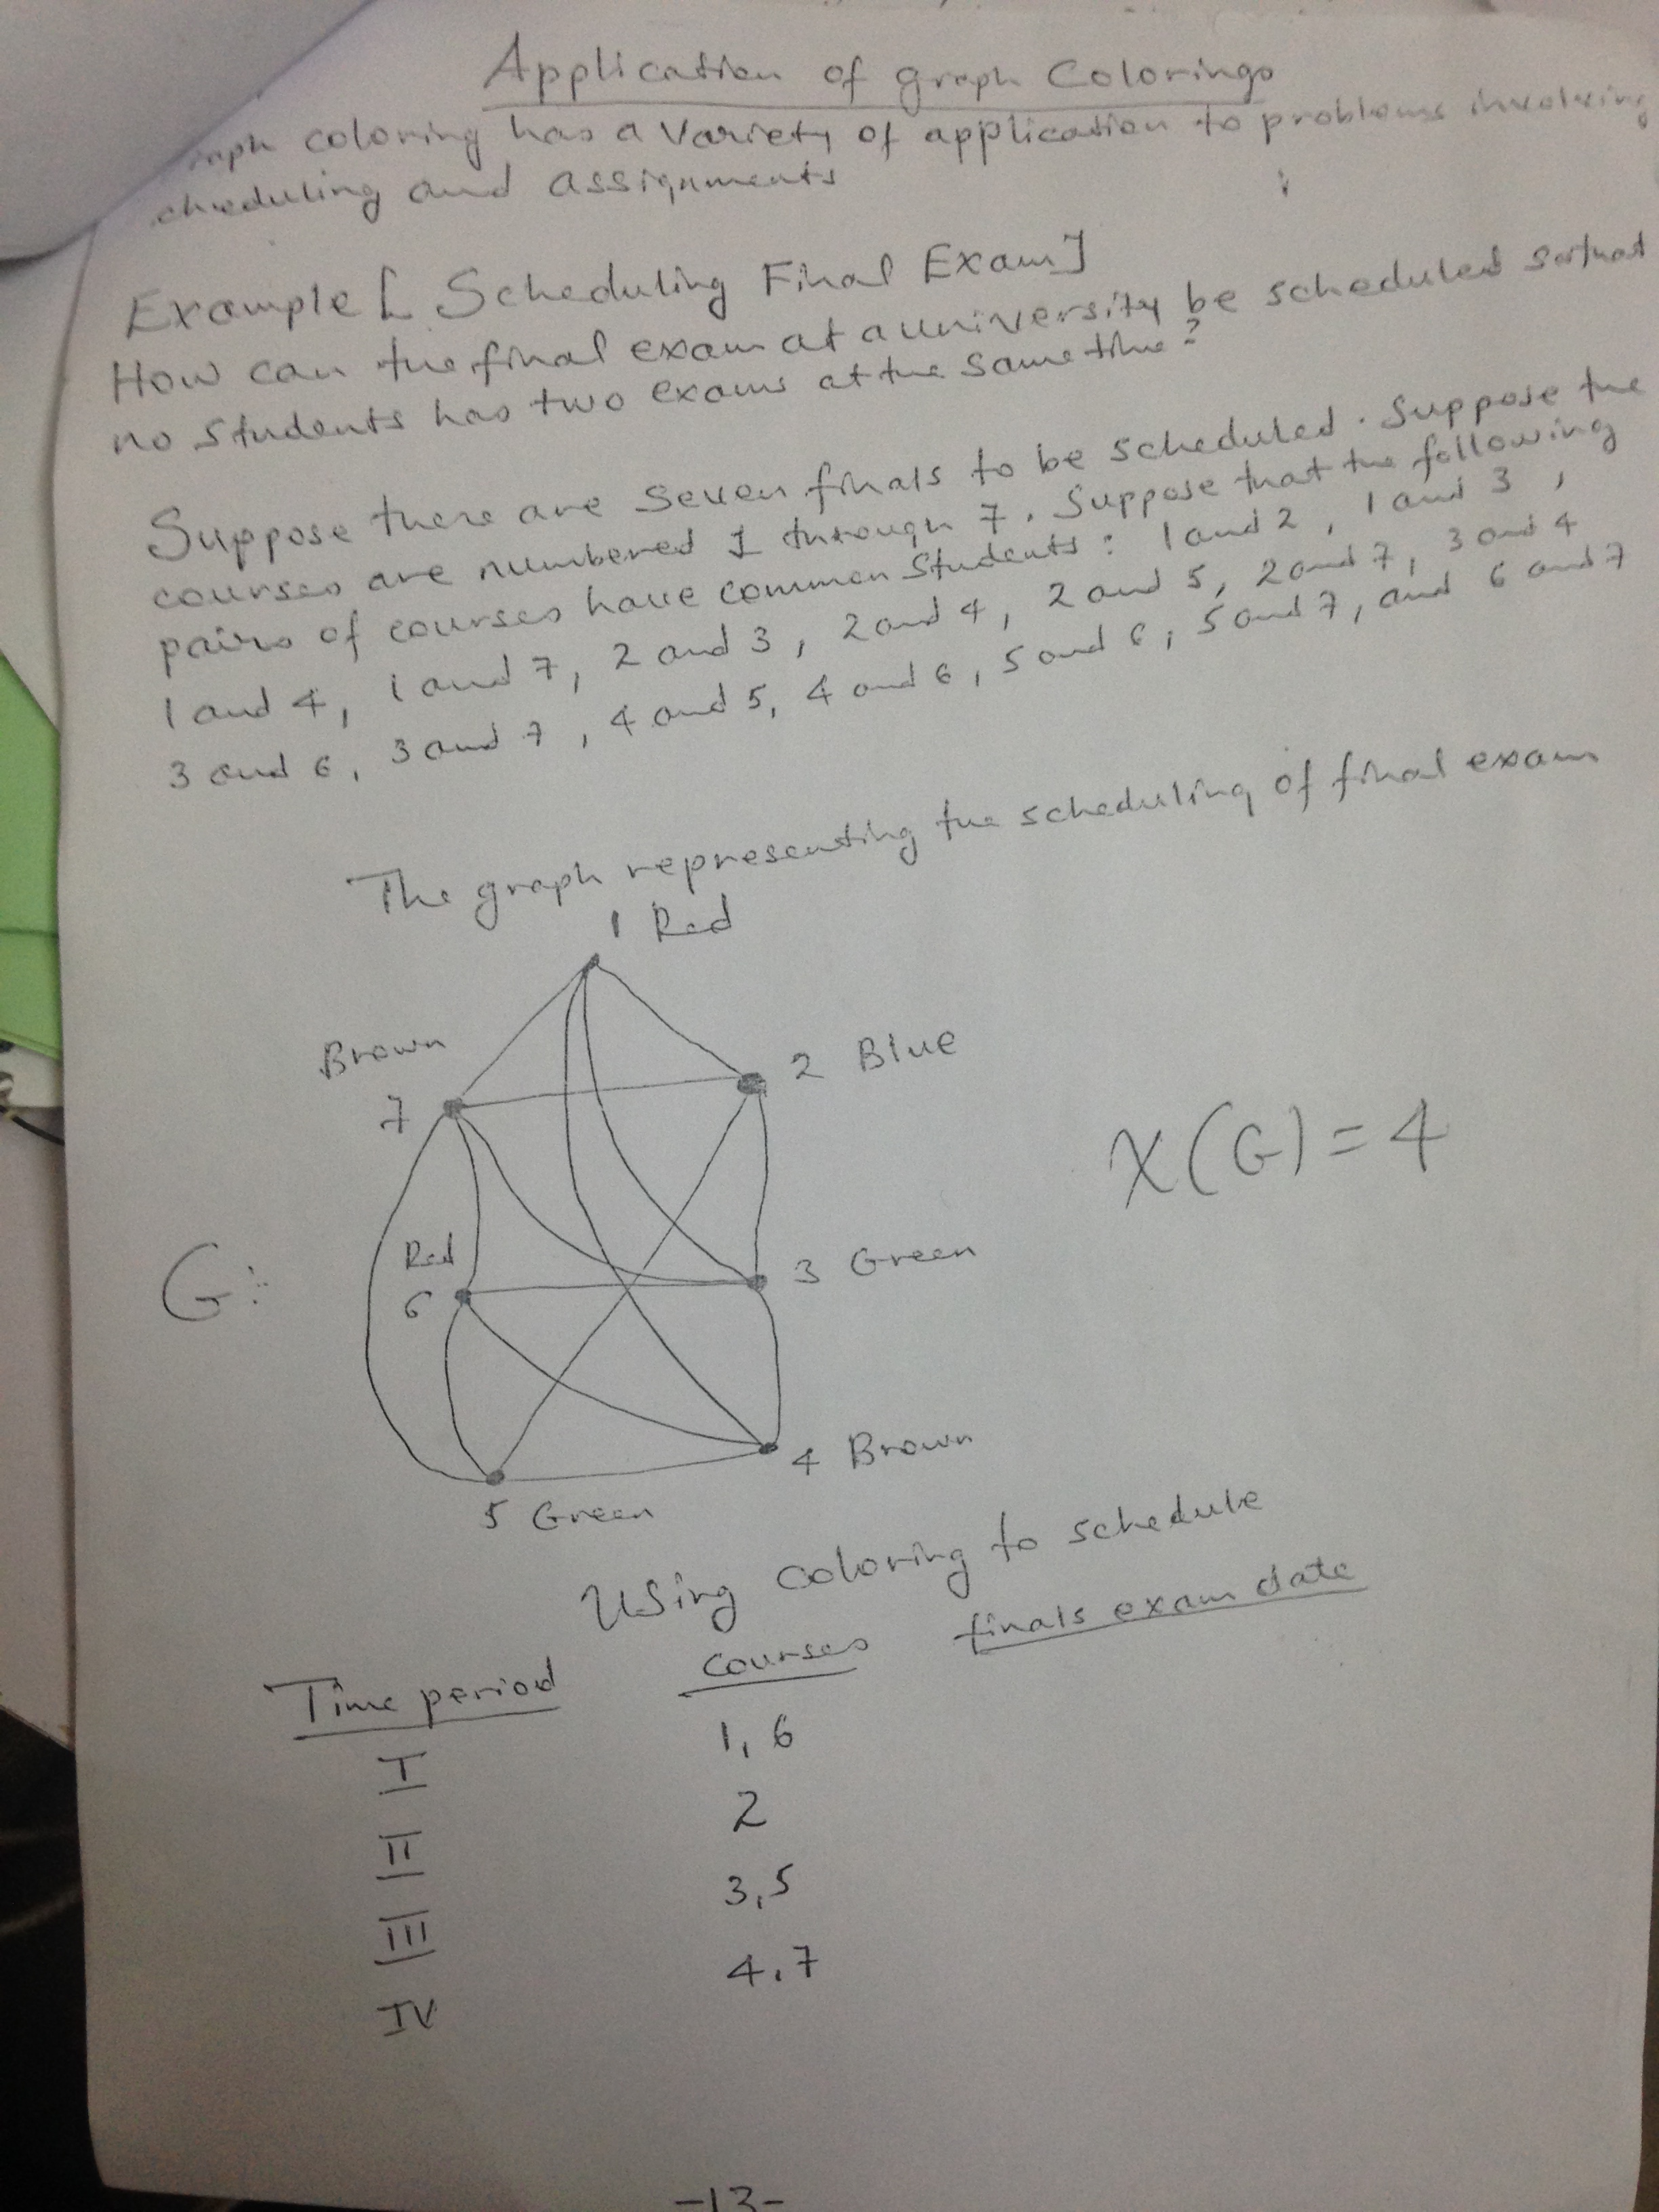 Application of graph Colorings
raph coloring has a variety of application to problems involving
cheduling and assignments
Example [ Scheduling Final Exam]
How can the final exam at a university be scheduled so that
no students has two exams at the same time?
Suppose there are seven finals to be scheduled. Suppose the
courses are numbered 1 through 7. Suppose that the following
pairs of courses have common students: 1 and 2, 1 and 3,
1 and 4, 1 and 7, 2 and 3, 2 and 4, 2 and 5, 2 and 7, 3 and 4
3 and 6, 3 and 7, 4 and 5, 4 and 6, 5 and 6, 5 and 7, and 6 and 7
The graph representing the scheduling of final exam
1 Red
Brown
7
2 Blue
X(G)=4
Red
6
3 Green
G:
4 Brown
5 Green
Using coloring to schedule
finals exam date
Time period courses
I 1, 6
II 2
III 3,5
IV 4,7
-13-